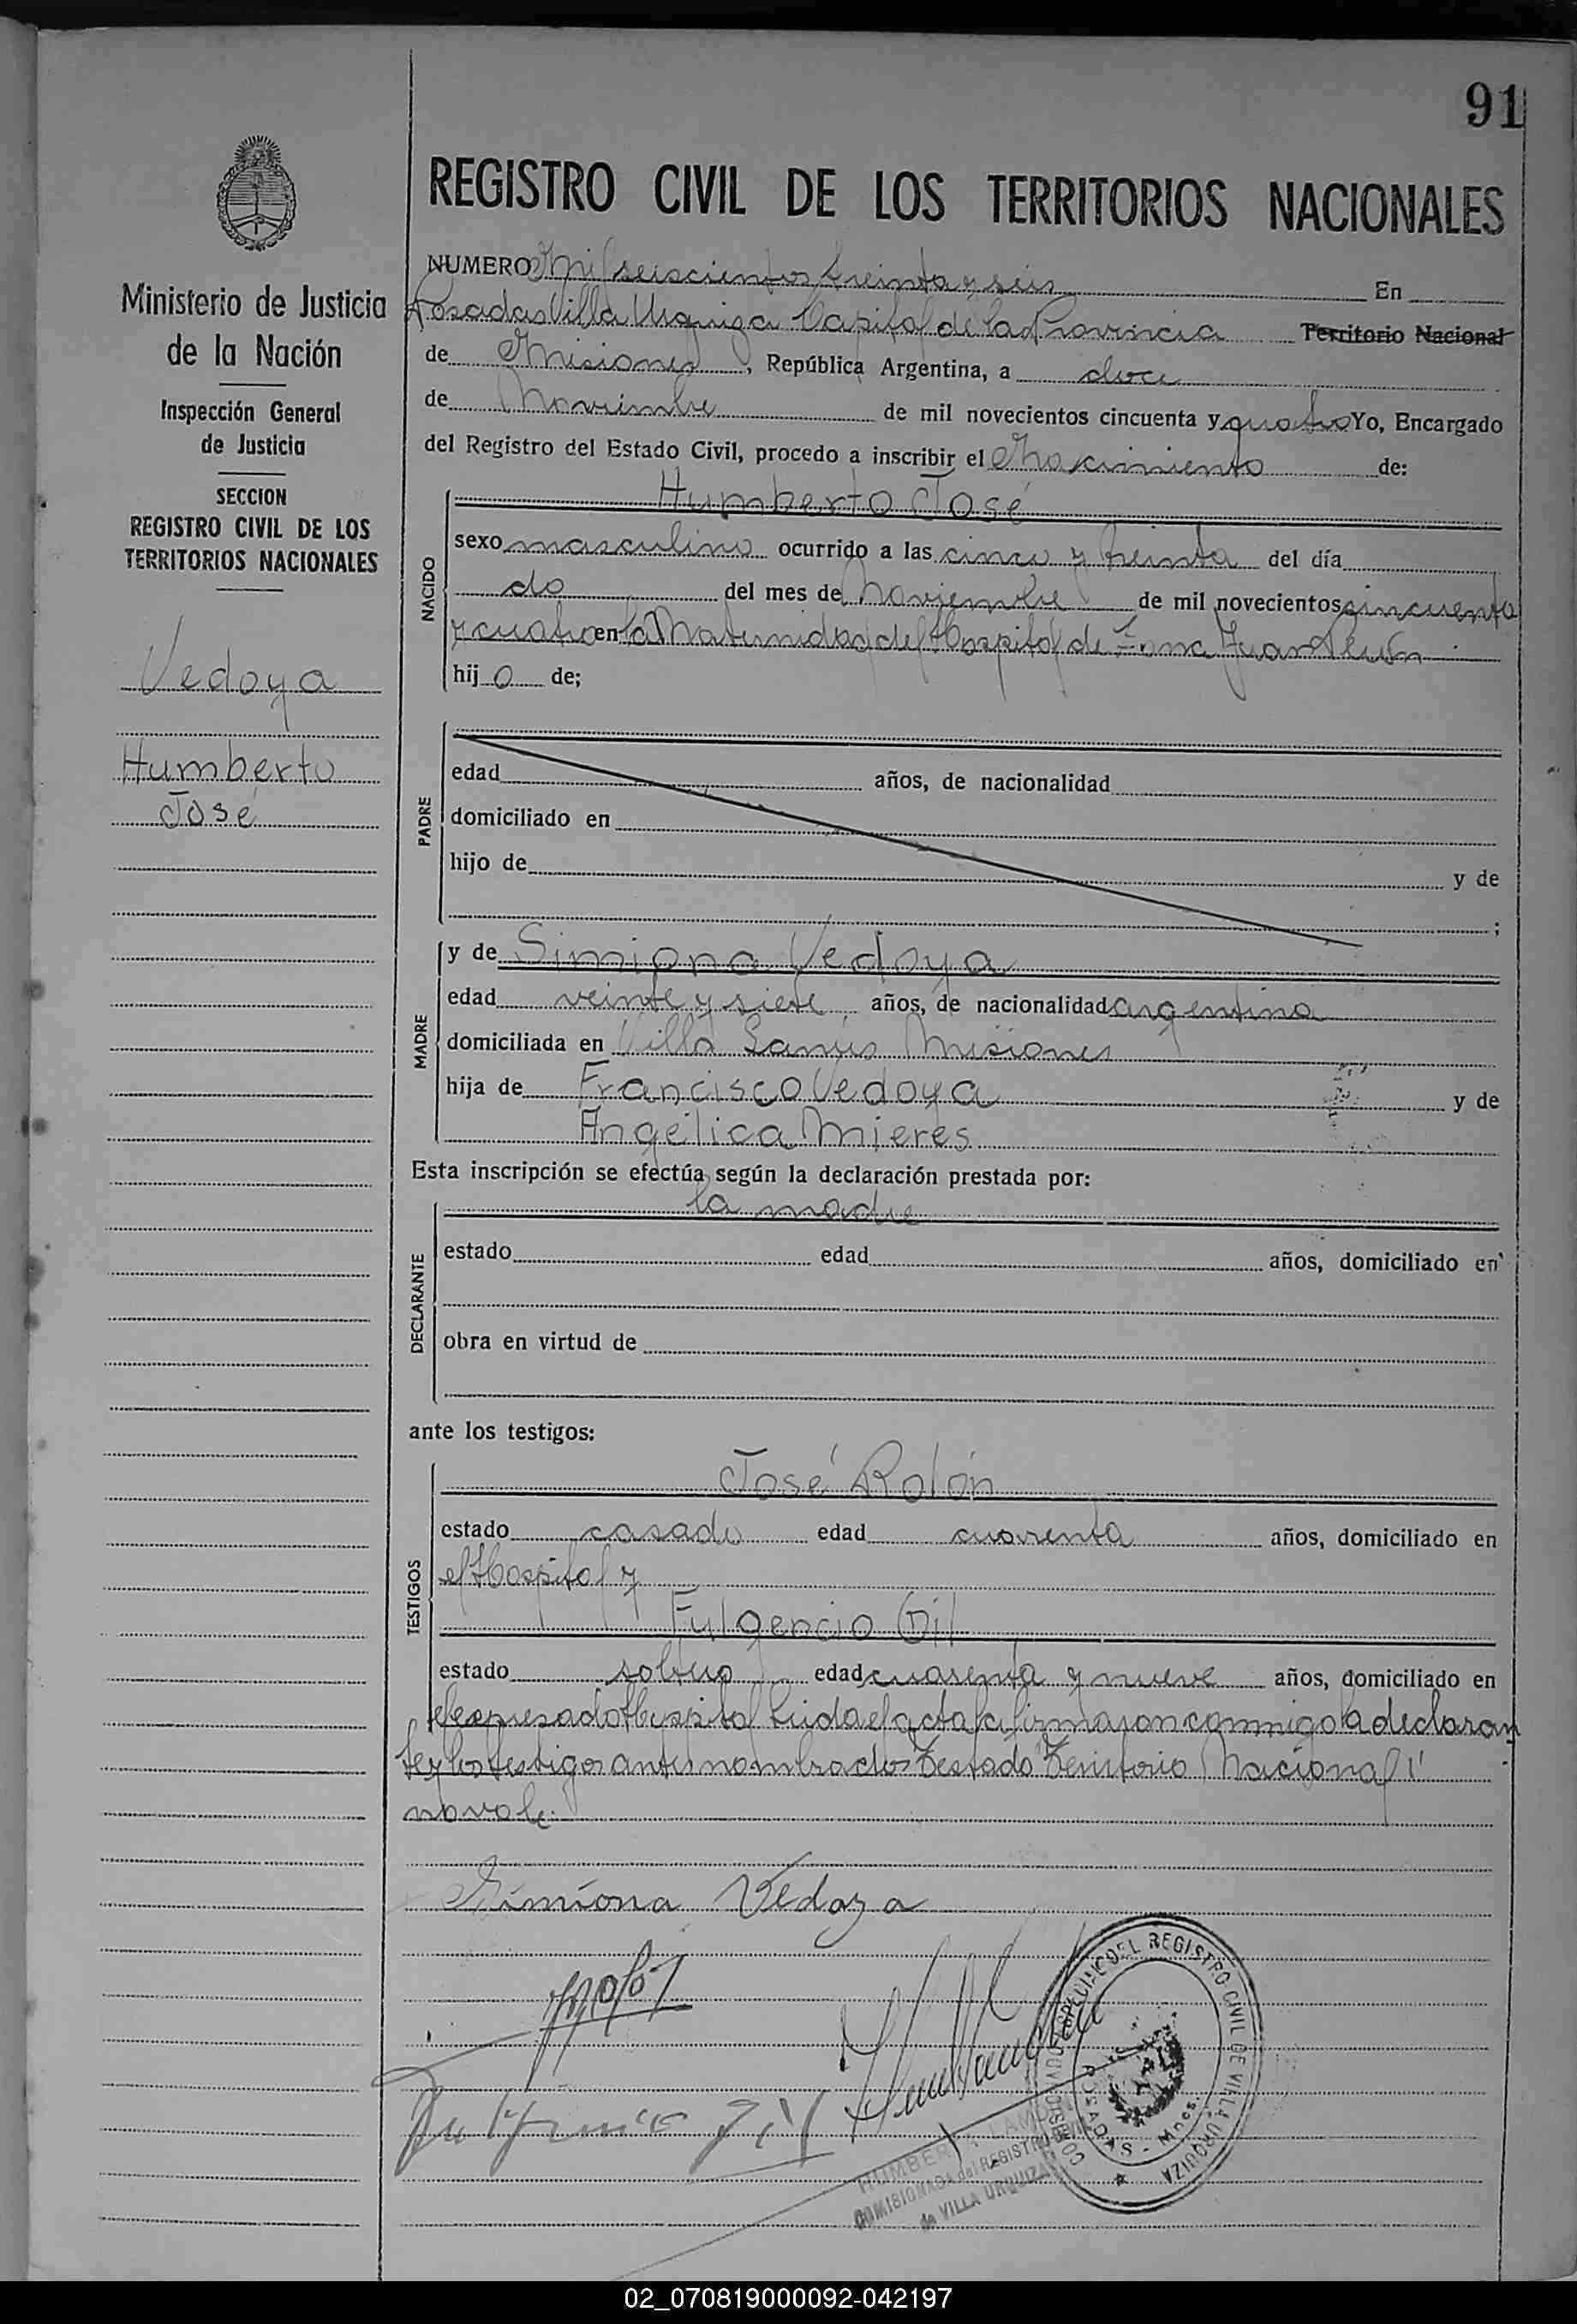 91
REGISTRO CIVIL DE LOS TERRITORIOS NACIONALES
Ministerio de Justicia
de la Nación
Inspección General
de Justicia
SECCION
REGISTRO CIVIL DE LOS
TERRITORIOS NACIONALES
Vedoya
Humberto
José
NUMERO Mil seiscientos treinta y seis En
Posadas Villa Urquiza Capital de la Provincia Territorio Nacional
de Misiones, República Argentina, a doce
de Noviembre de mil novecientos cincuenta y quatro Yo, Encargado
del Registro del Estado Civil, procedo a inscribir el Nacimiento de:
Humberto José
NACIDO
sexo masculino ocurrido a las cinco y treinta del día
do del mes de Noviembre de mil novecientos cincuenta
y cuatro en la Maternidad del Hospital de Zona Juan Perón
hijo de;
PADRE
edad años, de nacionalidad
domiciliado en
hijo de y de
;
MADRE
y de Simiona Vedoya
edad veinte y siete años, de nacionalidad argentina
domiciliada en Villa Lanús Misiones
hija de Francisco Vedoya y de
Angélica Mieres
Esta inscripción se efectúa según la declaración prestada por:
la madre
DECLARANTE
estado edad años, domiciliado en
obra en virtud de
ante los testigos:
José Rolón
TESTIGOS
estado casado edad cuarenta años, domiciliado en
el Hospital y
Fulgencio Gil
estado soltero edad cuarenta y nueve años, domiciliado en
el expresado Hospital Leida el acta la firmaron conmigo la declaran
te y los testigos antes nombrados Testado "Territorio Nacional"
no vale.
Simiona Vedoya
Fulgencio Gil
DEL REGISTRO CIVIL DE VILLA URQUIZA
POSADAS - Mnes.
COMISIONADA del REGISTRO
de VILLA URQUIZA
02_070819000092-042197